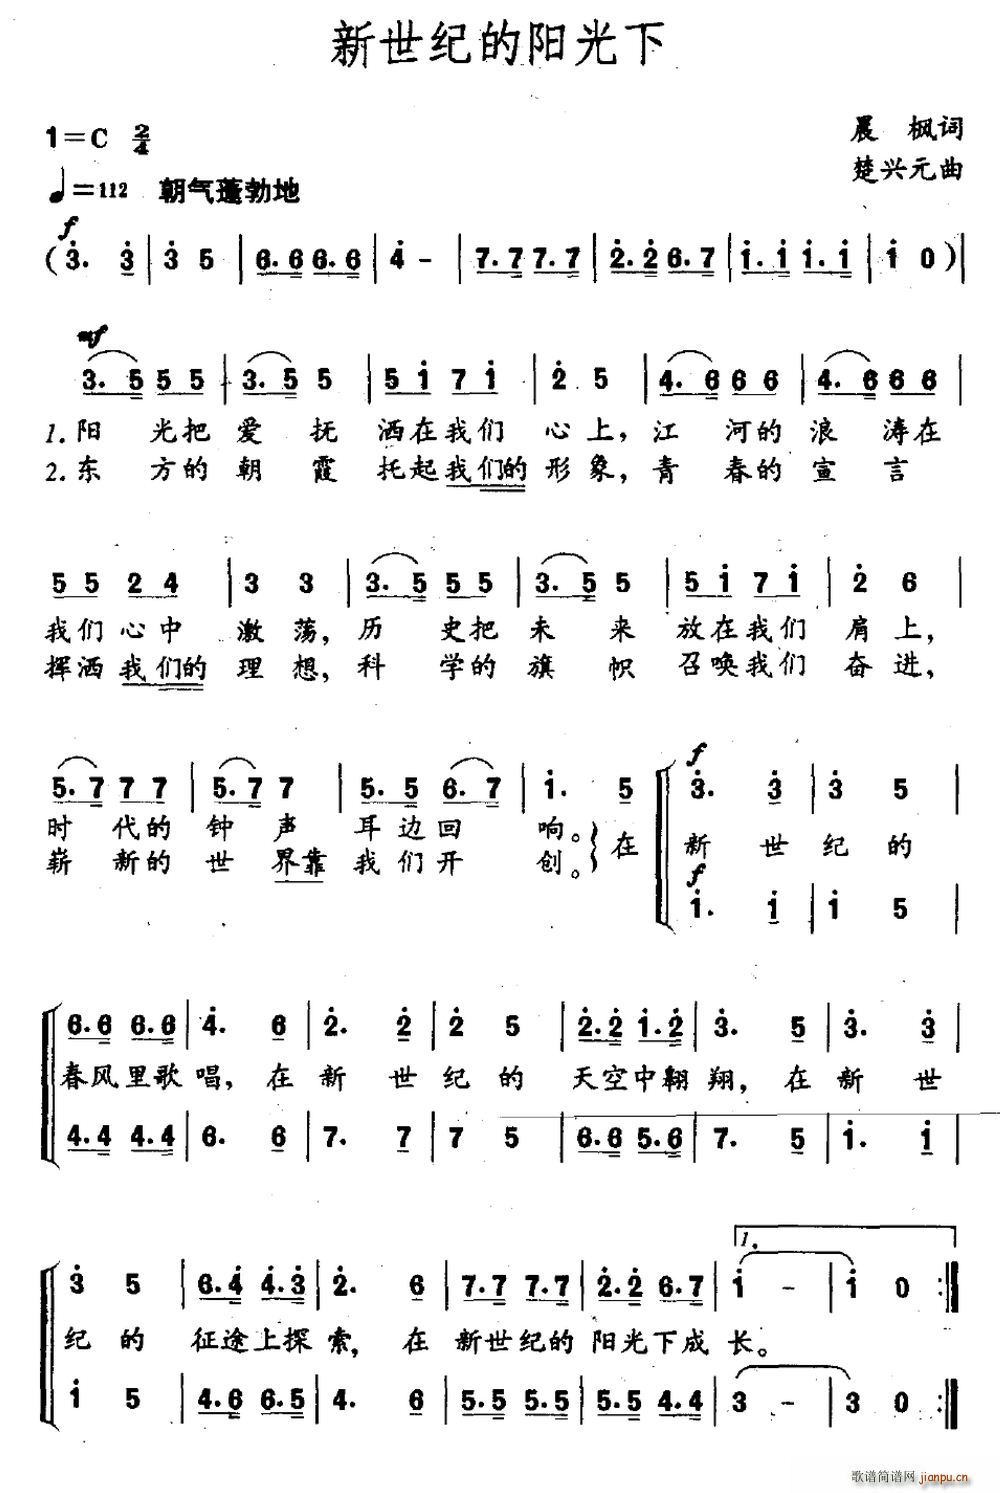 新世纪的阳光下
1=C 2/4
晨 枫词
♩=112 朝气蓬勃地
楚兴元曲
f
(3̇. 3̇ | 3̇ 5 | 6.6 6.6 | 4̇ - | 7.7 7.7 | 2̇.2̇ 6.7 | 1̇.1̇ 1̇.1̇ | 1̇ 0 )|
mf
3.5 5 5 | 3.5 5 | 5 1̇ 7 1̇ | 2̇ 5 | 4.6 6 6 | 4.6 6 6 |
1.阳 光把 爱 抚 洒在我们 心上,江 河的 浪 涛在
2.东 方的 朝 霞 托起我们的 形象,青 春的 宣 言
5 5 2 4 | 3 3 | 3.5 5 5 | 3.5 5 | 5 1̇ 7 1̇ | 2̇ 6 |
我们 心中 激荡,历 史把 未 来 放在我们 肩上,
挥洒我们的 理想,科 学的 旗 帜 召唤我们 奋进,
f
5.7 7 7 | 5.7 7 | 5.5 6.7 | 1̇. 5 | 3̇. 3̇ | 3̇ 5 |
时 代的 钟 声 耳边回 响。
崭 新的 世 界靠 我们开 创。
在 新 世 纪 的
f
1̇. 1̇ | 1̇ 5 |
6.6 6.6 | 4̇. 6 | 2̇. 2̇ | 2̇ 5 | 2̇.2̇ 1̇.2̇ | 3̇. 5 | 3̇. 3̇ |
春风里歌 唱,在 新 世 纪 的 天空中翱 翔,在 新 世
4.4 4.4 | 6. 6 | 7. 7 | 7 5 | 6.6 5.6 | 7. 5 | 1̇. 1̇ |
1.
3̇ 5 | 6.4̇ 4̇.3̇ | 2̇. 6 | 7.7 7.7 | 2̇.2̇ 6.7 | 1̇ - | 1̇ 0 :|
纪 的 征途上探 索,在 新世纪的 阳光下成 长。
1̇ 5 | 4.6 6.5 | 4. 6 | 5.5 5.5 | 5.5 4.4 | 3 - | 3 0 :|
歌谱简谱网 jianpu.cn